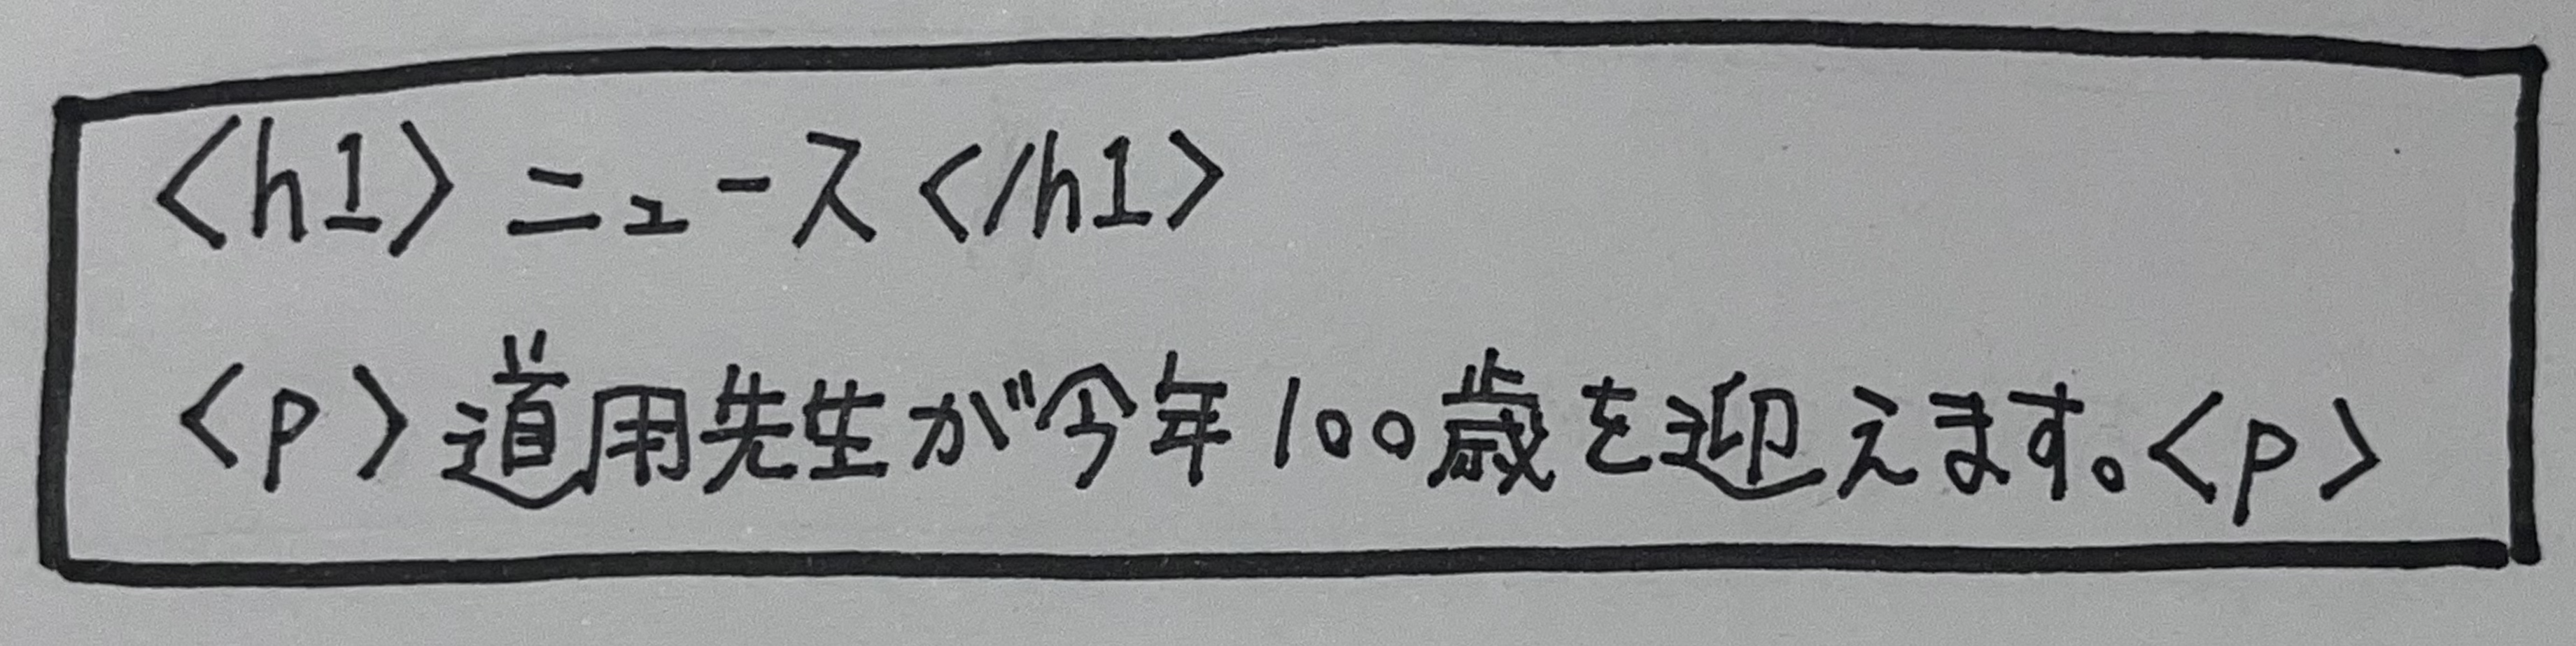 <h1>ニュース</h1>
<p>道用先生が今年100歳を迎えます。<p>